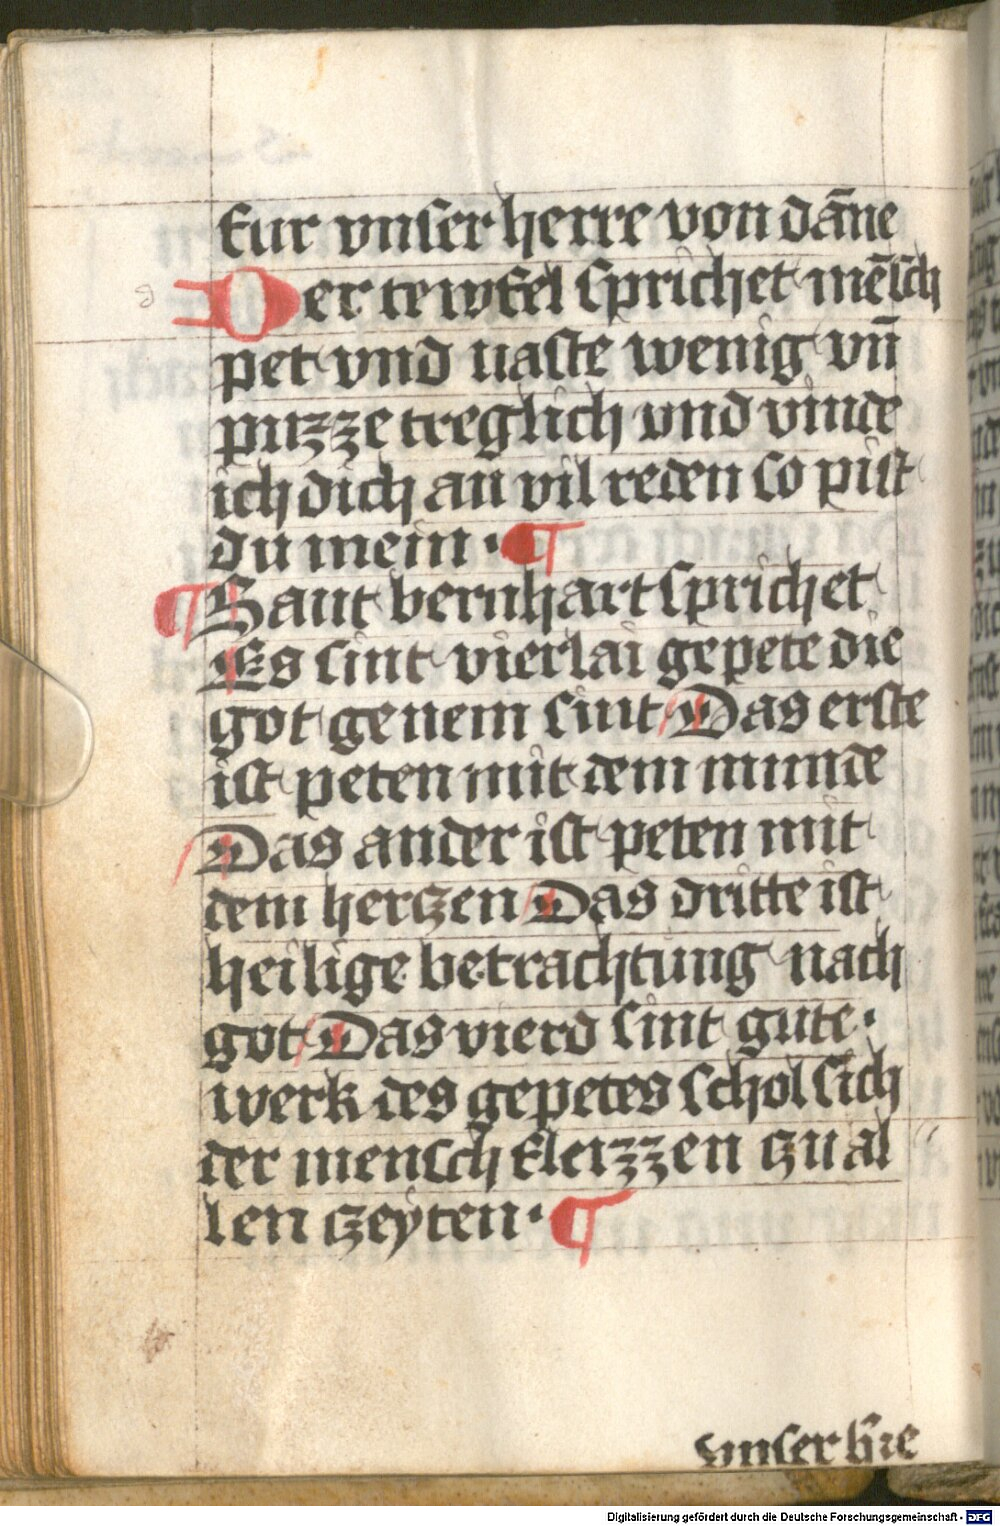 fur vnser herre von dāne
d
Der tewfel sprichet mēsch
pet vnd vaste wenig vn̄
puzze treglich vnd vinde
ich dich an vil reden so pist
du mein · ¶
¶ Sant bernhart sprichet
Es sint vierlai gepete die
got genem sint Das erste
ist peten mit dem munde
Das ander ist peten mit
dem herczen Das dritte ist
heilige betrachtung nach
got Das vierd sint gute ·
werk des gepetes schol sich
der mensch fleizzen czu al
len czeyten · ¶
vnser h̄re
Digitalisierung gefördert durch die Deutsche Forschungsgemeinschaft - DFG